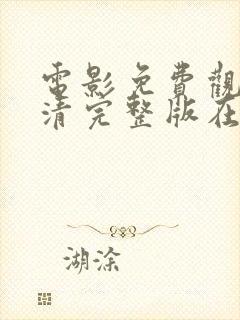 電影免費觀
清完整版在
湖涂